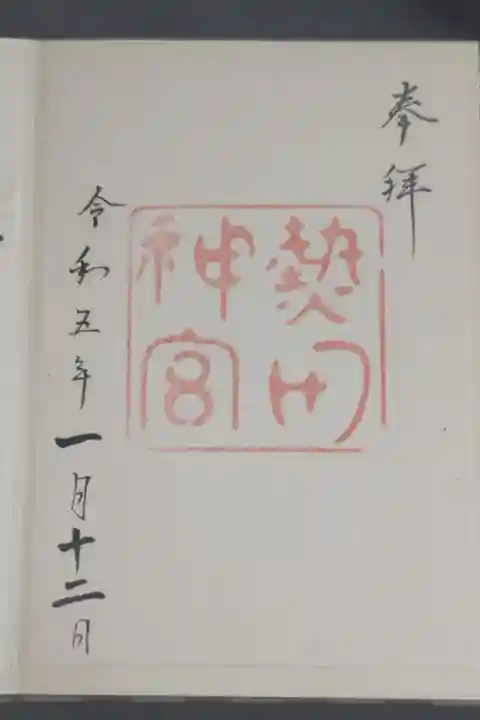 奉拝
熱田
神宮
令和五年一月十二日